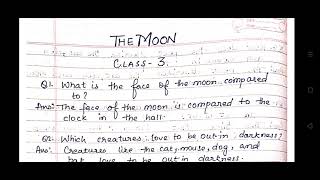 THE MOON
CLASS - 3.
Q1. What is the face of the moon compared
to?
Ans: The face of the moon is compared to the
clock in the hall.
Q2. Which creatures love to be out in darkness?
Ans: Creatures like the cat, mouse, dog, and
bat love to be out in darkness.